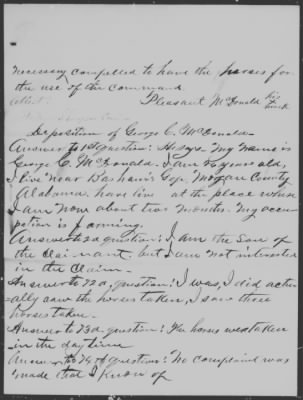 necessary compelled to have the horses for
the use of the command
Attest Pleasant McDonald his
mark
Deposition of George C. McDonald
Answer to 1st question: He says My name is
George C. McDonald. I am years old,
I live near Basham's Gap Morgan County
Alabama. have live at the place where
I am now about two months. My occu-
pation is farming.
Answer to 2d question: I am the Son of
the Claimant but I am not interested
in the Claim.
Answer to 72d, question: I was, I did actu-
ally saw the horses taken, I saw three
horses taken.
Answer to 73d question: The horses was taken
in the day time
Answer to 74th question: No complaint was
made that I know of